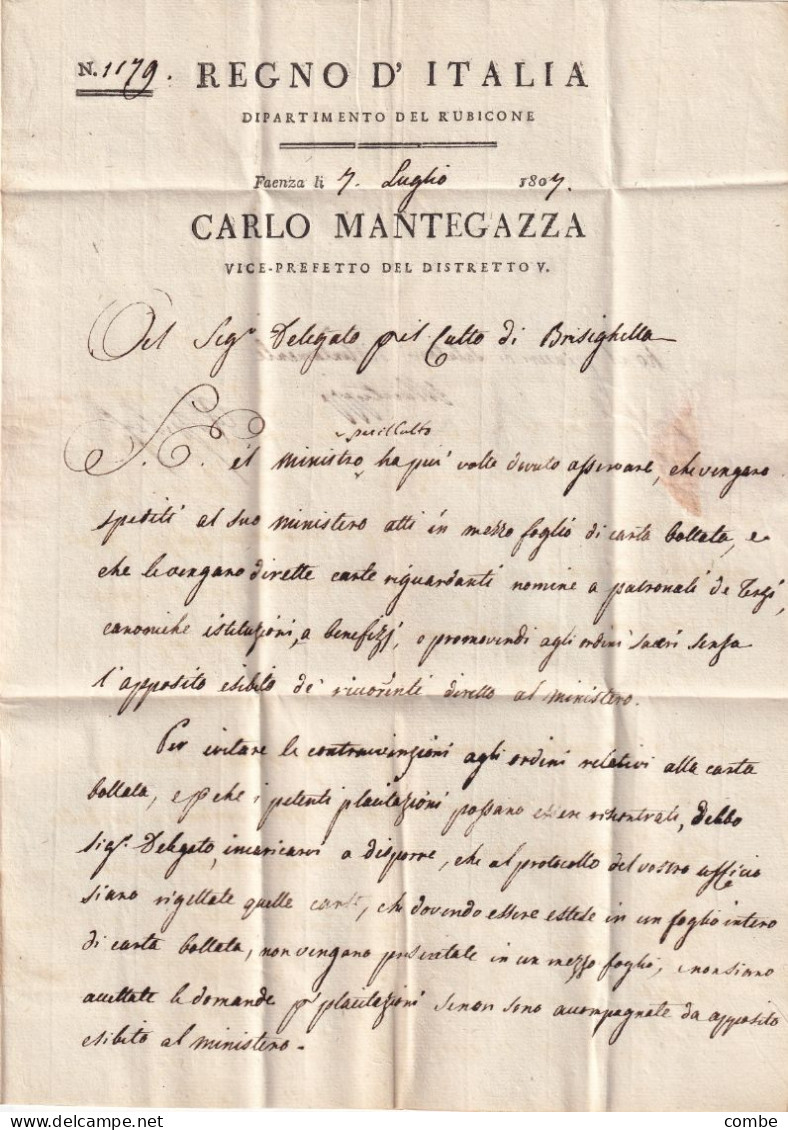 N. 1179. REGNO D' ITALIA
DIPARTIMENTO DEL RUBICONE
Faenza li 7. Luglio 1807.
CARLO MANTEGAZZA
VICE-PREFETTO DEL DISTRETTO V.
Al Sigr. Delegato pel Culto di Brisighella
per il Culto
S. E. il Ministro ha piu' volte dovuto osservare, che vengano
spediti al suo ministero atti in mezzo foglio di carta bollata, e
che le vengano dirette carte riguardanti nomine a patronati de Terzi,
canoniche istituzioni, a benefizj, o promovendi agli ordini sacri senza
l'apposito esibito de' ricorrenti diretto al ministero.
Per evitare le contravvenzioni agli ordini relativi alla carta
bollata, e pche i petenti placitazioni possano essere riscontrati, debbo
Sigr. Delegato, incaricarvi a disporre, che al protocollo del vostro officio
siano rigettate quelle carte, che dovendo essere estese in un foglio intero
di carta bollata, non vengano presentate in un mezzo foglio, e non siano
accettate le domande p placitazioni se non sono accompagnate da apposito
esibito al ministero.
combe